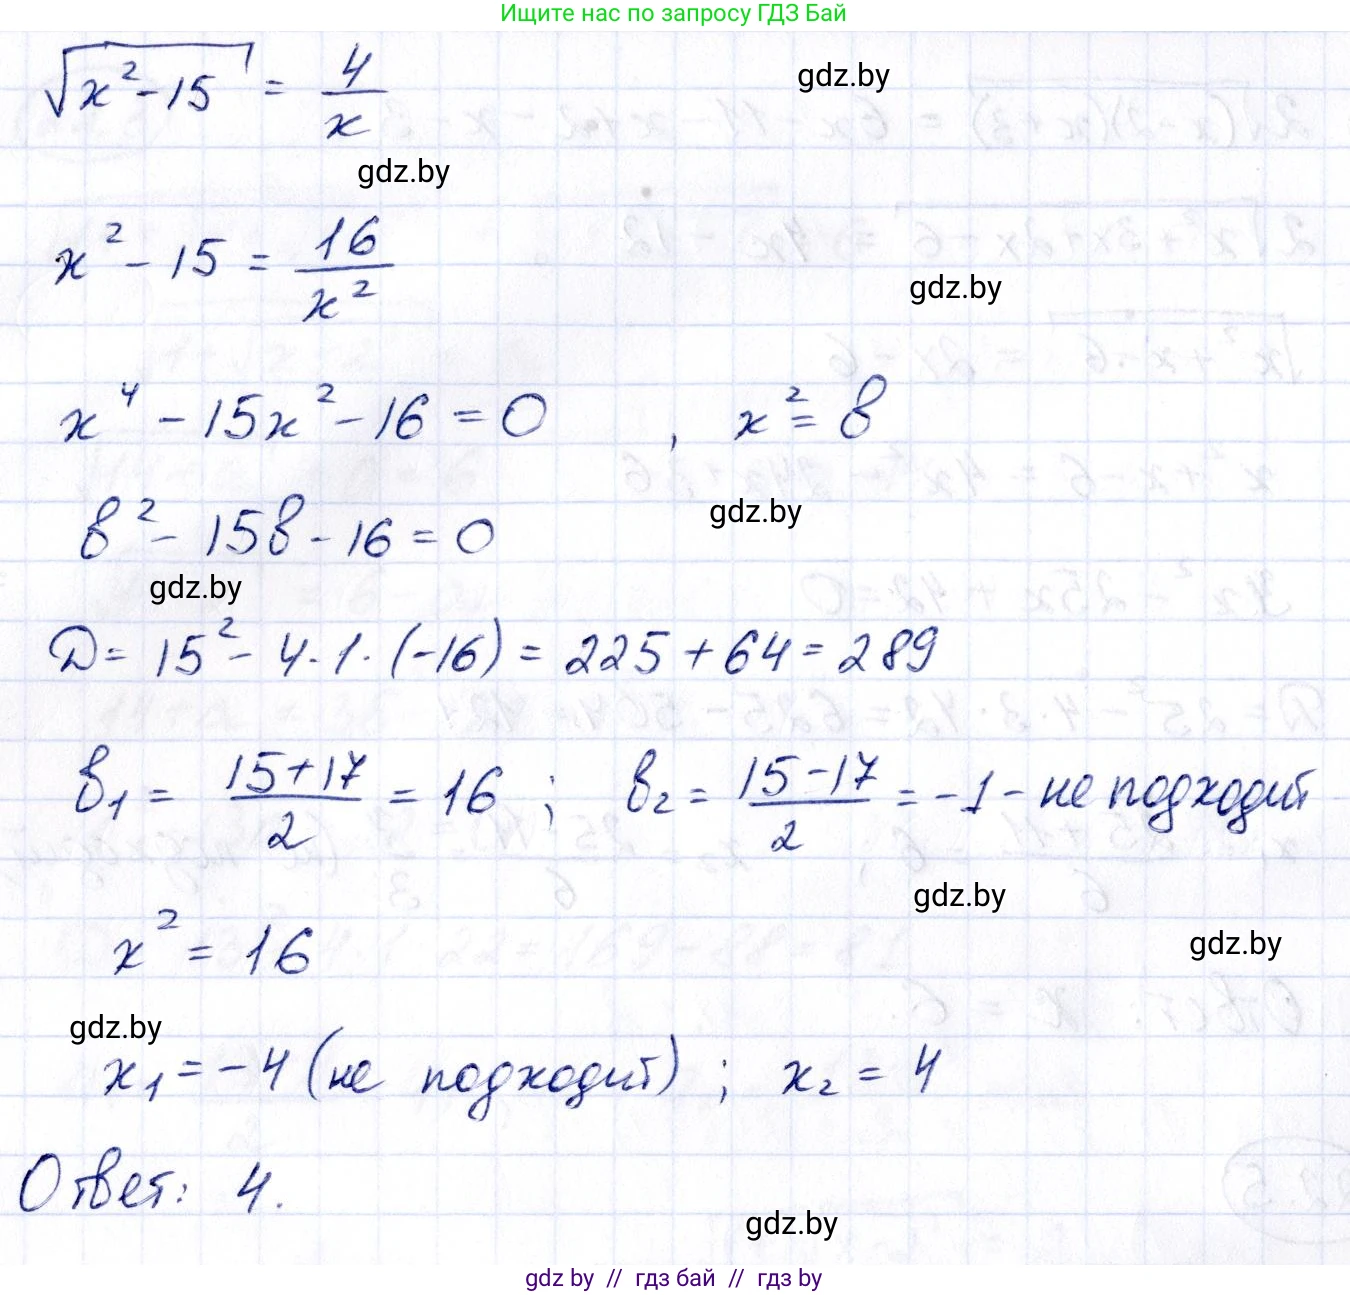 Ищите нас по запросу ГДЗ Бай
√(x² - 15) = 4/x
gdz.by
gdz.by
x² - 15 = 16/x²
gdz.by
x⁴ - 15x² - 16 = 0 , x² = в
в² - 15в - 16 = 0
gdz.by
gdz.by
D = 15² - 4·1·(-16) = 225 + 64 = 289
в₁ = (15+17)/2 = 16 ; в₂ = (15-17)/2 = -1 - не подходит
gdz.by
x² = 16
gdz.by
gdz.by
x₁ = -4 (не подходит) ; x₂ = 4
Ответ: 4.
gdz.by
gdz by // гдз бай // гдз by